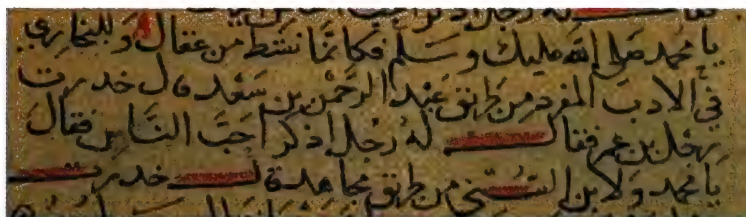 له رجل اذكر احب
يا محمد صلى الله عليك وسلم فكانما نشط من عقال وللبخاري
في الادب المفرد من طريق عبد الرحمن بن سعد قال خدرت
رجل بن عمر فقال له رجل اذكر احب الناس فقال
يا محمد ولابن السني من طريق مجاهد قال خدرت